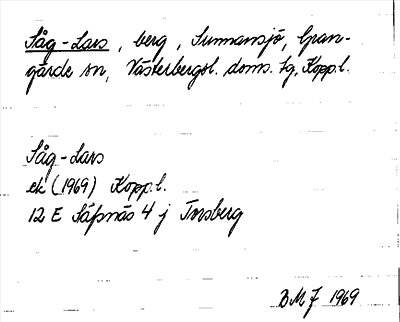 Såg-Lars, berg, Sunnansjö, Gran-
gärde sn, Västerbergsl. doms. tg, Kopp.l.
Såg-Lars
ek (1969) Kopp.l.
12 E Säfsnäs 4 j Torsberg
BMJ 1969